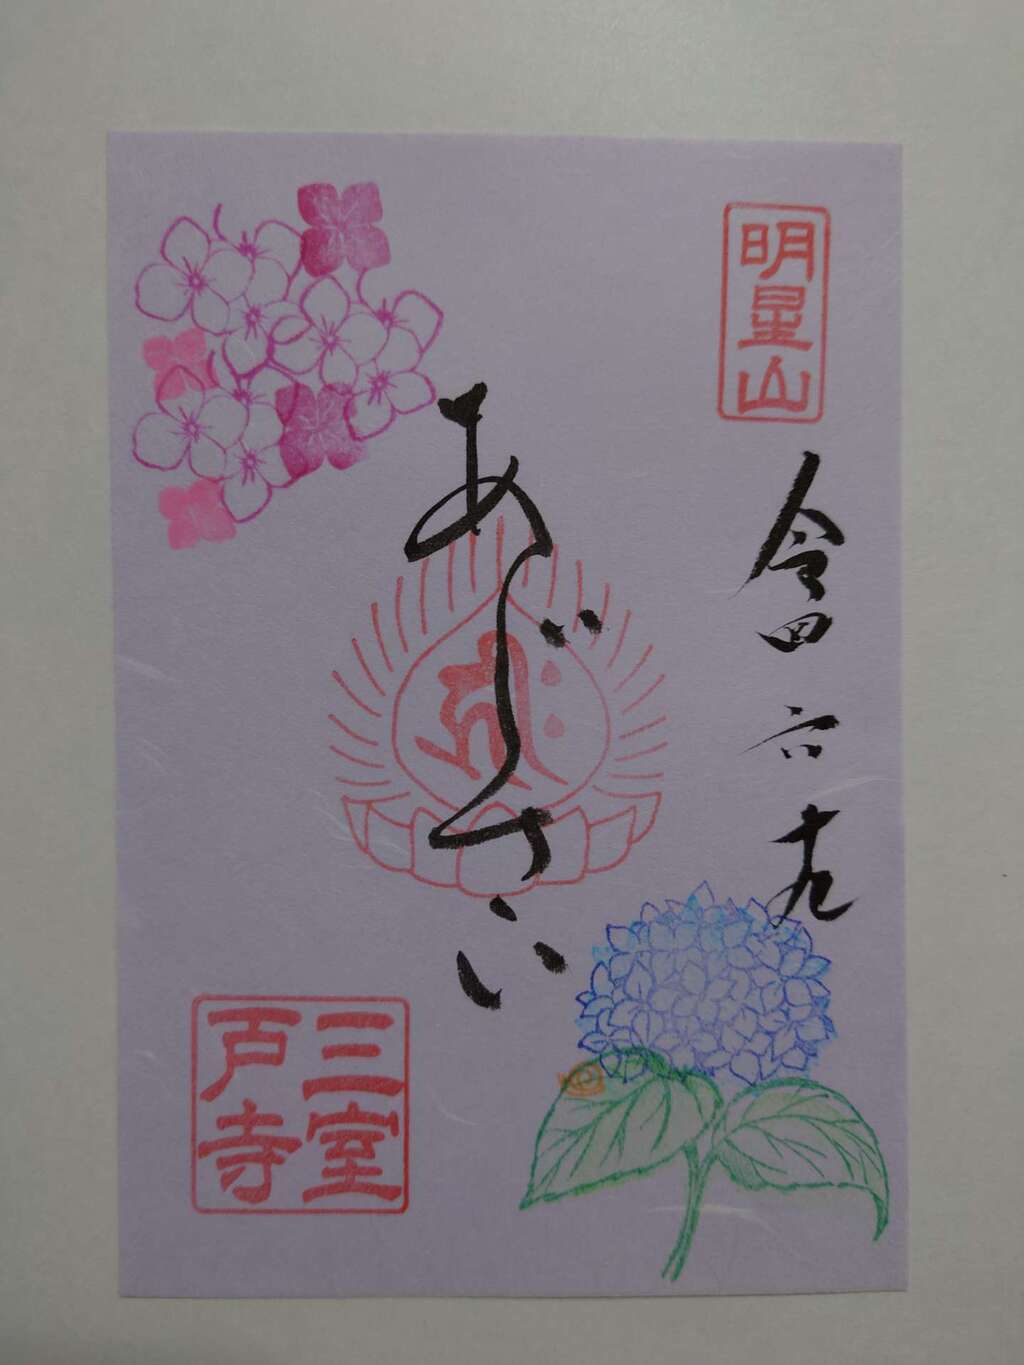 明星山
令四 六 十九
あじさい
三室
戸寺